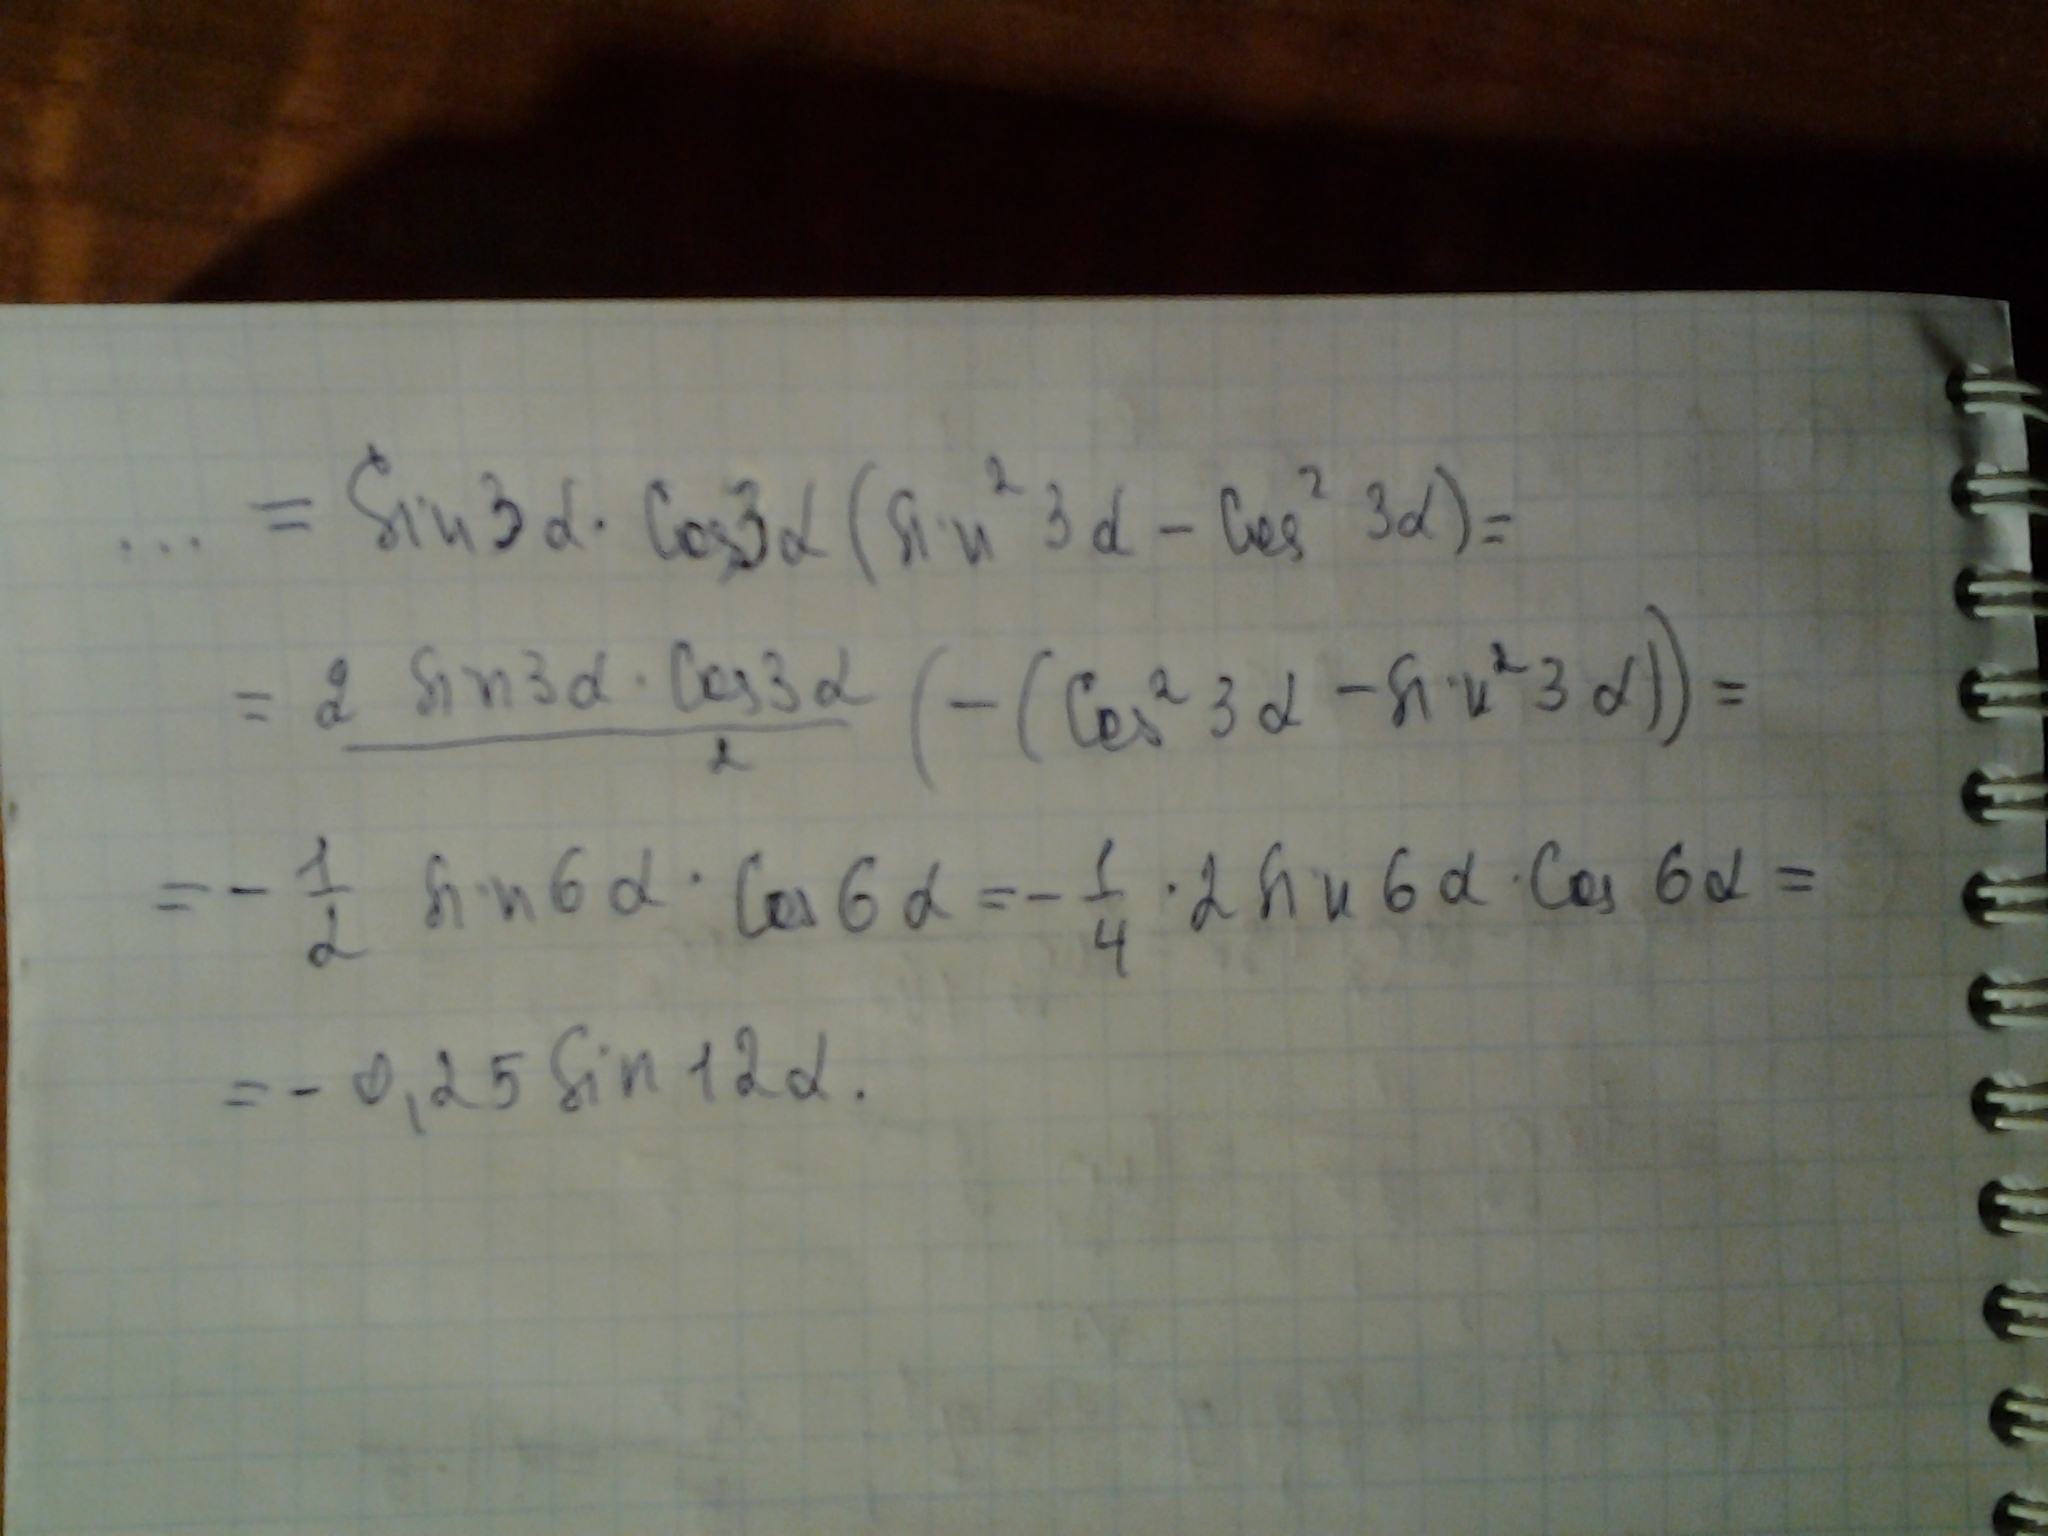 ... = Sin3α · Cos3α (Sin² 3α - Cos² 3α) =
= 2 Sin3α · Cos3α / 2 (-(Cos² 3α - Sin² 3α)) =
= - 1/2 Sin6α · Cos6α = - 1/4 · 2 Sin6α · Cos 6α =
= - 0,25 Sin 12α.